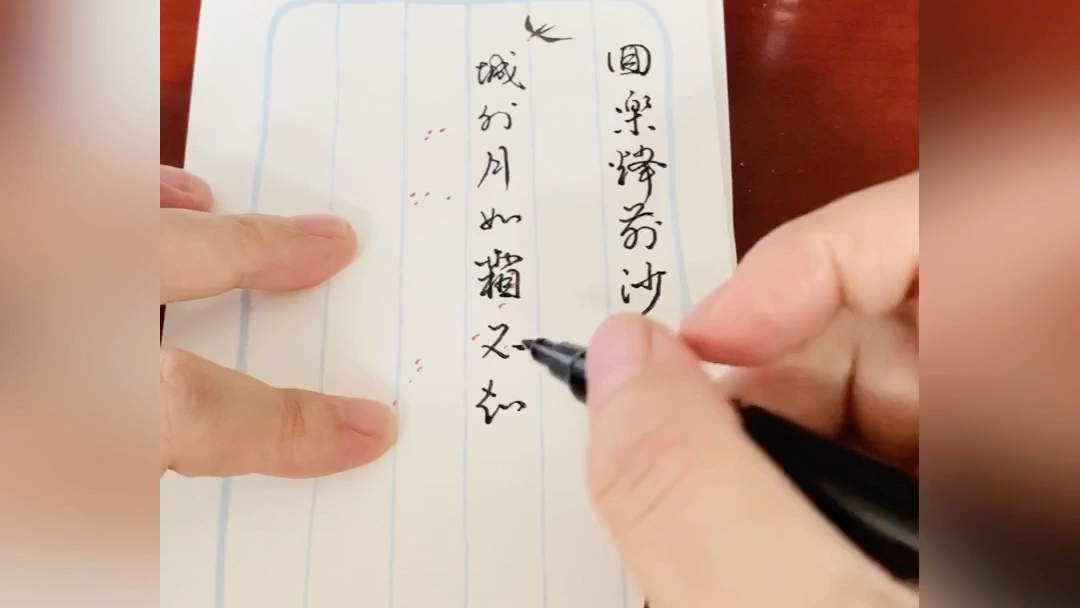 回樂烽前沙
城外月如霜不知